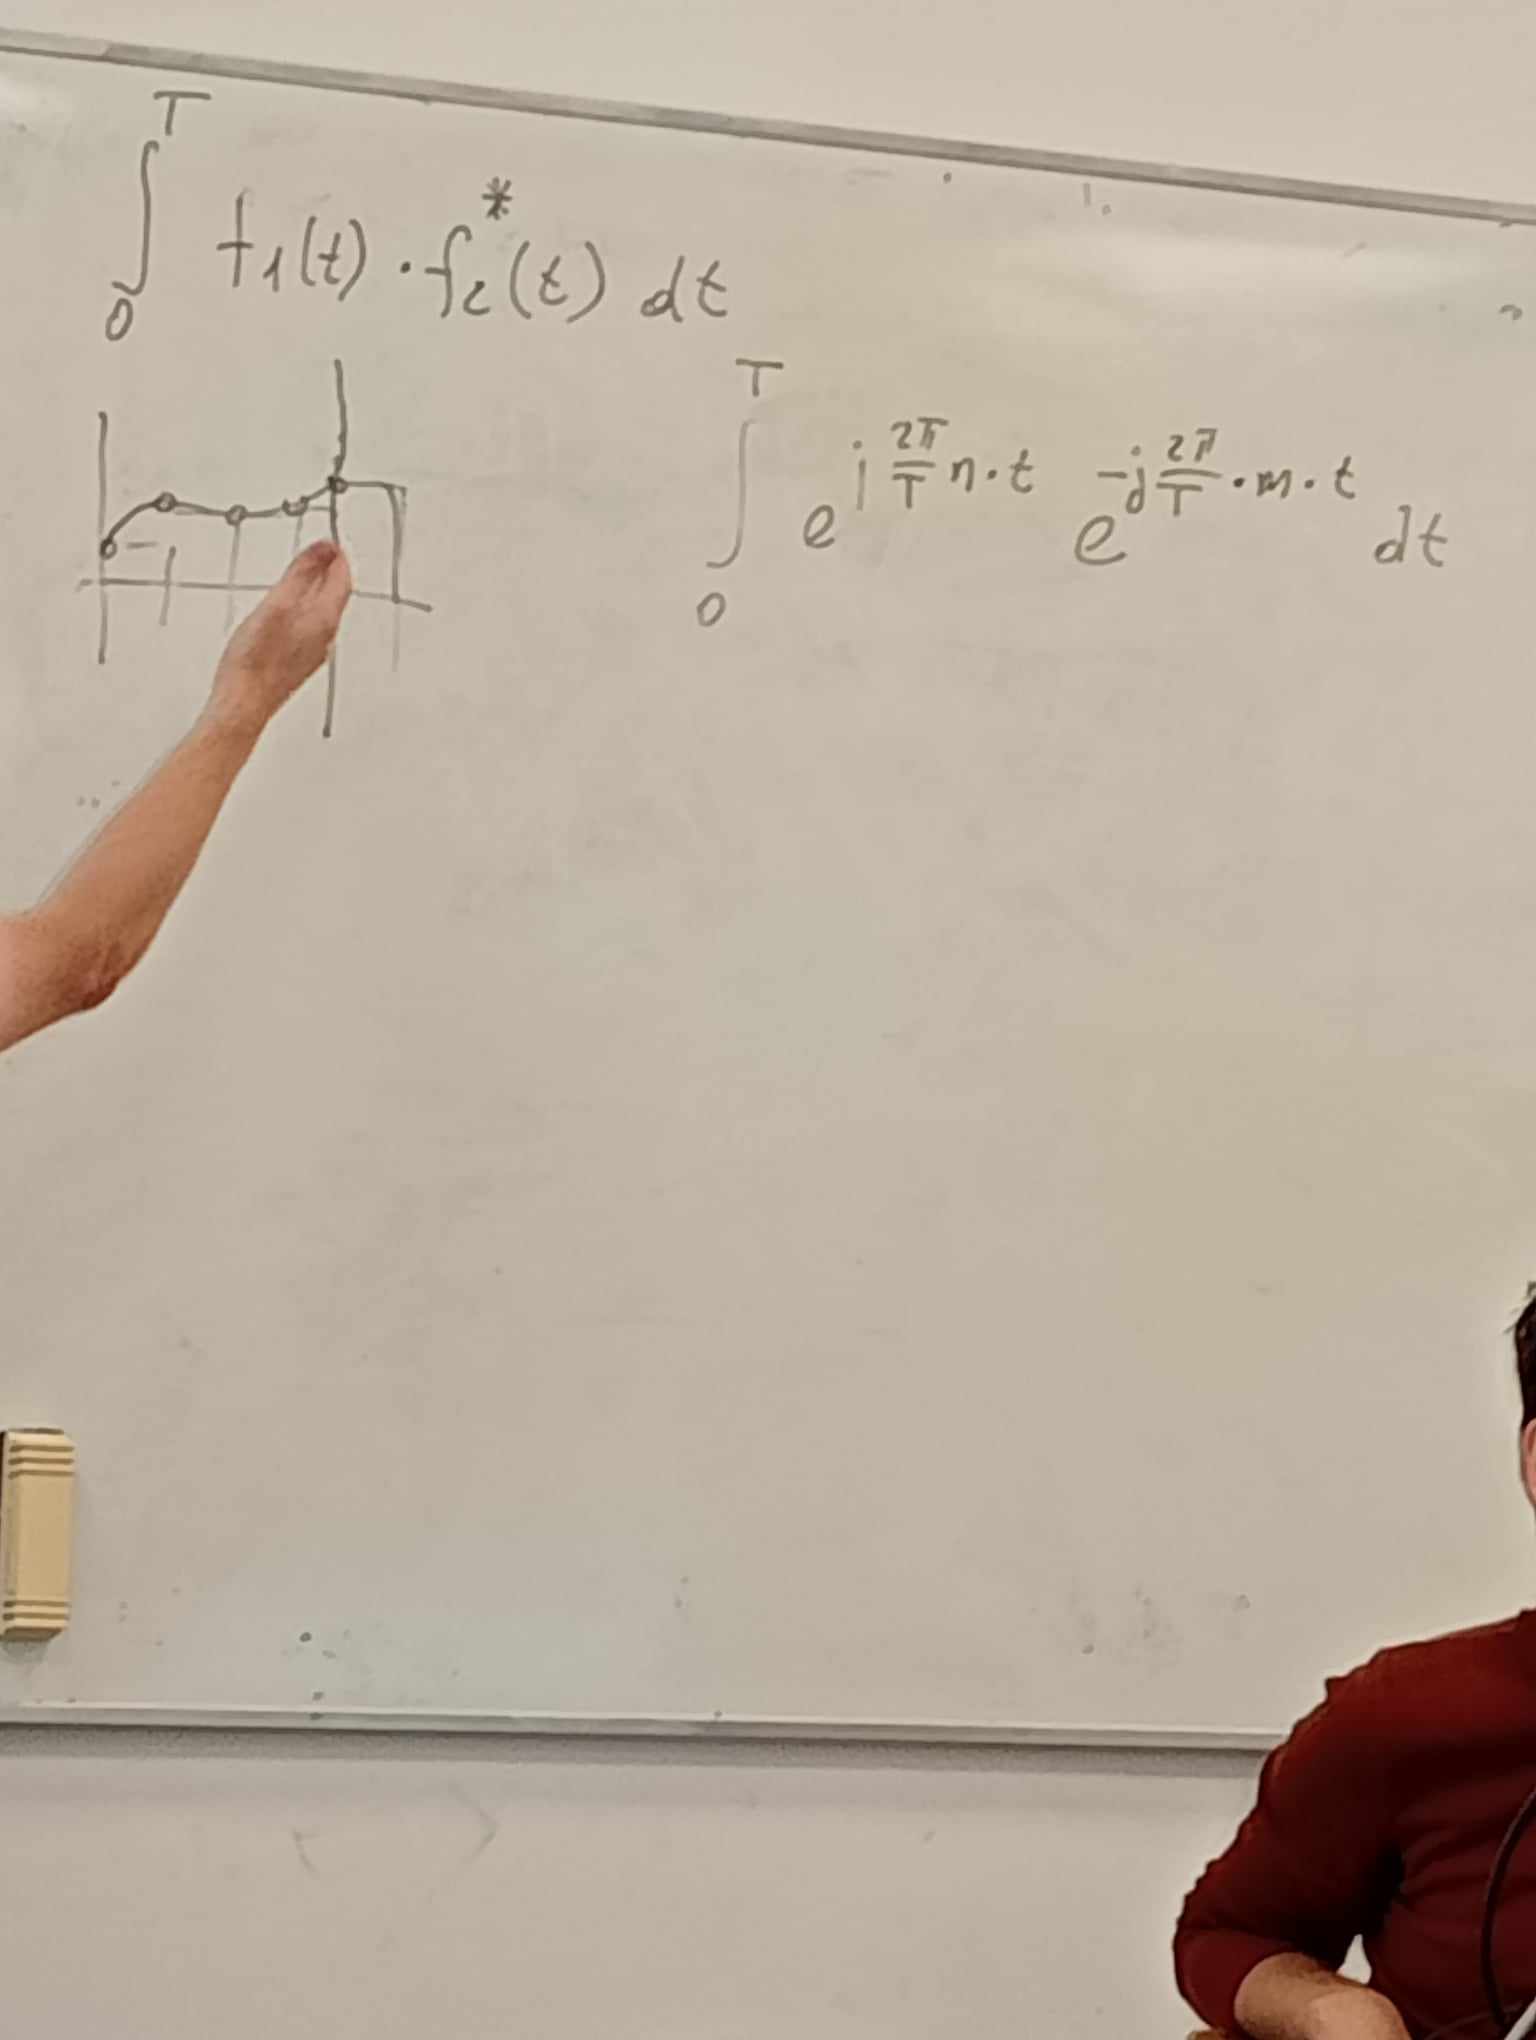 ∫₀ᵀ f₁(t) · f₂*(t) dt
∫₀ᵀ e^{j (2π/T) n·t} e^{-j (2π/T)·m·t} dt